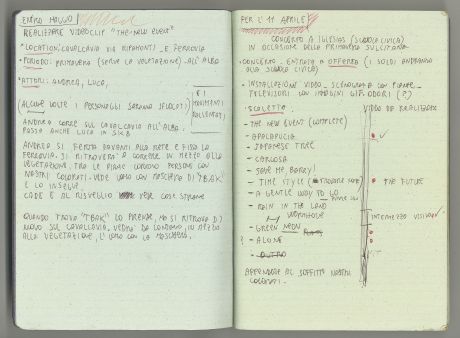 ENTRO MAGGIO
REALIZZARE VIDEOCLIP "THE NEW EVENT"
• LOCATION: CAVALCAVIA VIA RIPAMONTI E FERROVIA
• PERIODO: PRIMAVERA (SERVE LA VEGETAZIONE) ALL'ALBA
• ATTORI: ANDREA, LUCA,
(ALCUNE VOLTE I PERSONAGGI SARANNO SFUOCATI)
E I MOVIMENTI RALLENTATI
ANDREA CORRE SUL CAVALCAVIA ALL'ALBA.
PASSA ANCHE LUCA IN
ANDREA SI FERMA DAVANTI ALLA RETE E FISSA LA
FERROVIA. SI RITROVERA' A CORRERE IN MEZZO ALLA
VEGETAZIONE. TRA LE PIANE CORRONO PERSONE CON
NASTRI COLORATI. VEDE L'UOMO CON MASCHERA DI "TBAK"
E LO INSEGUE.
CADE E AL RISVEGLIO VEDE COSE STRANE
QUANDO TROVA "TBAK" LO PRENDE, MA SI RITROVA DI
NUOVO SUL CAVALCAVIA, VEDRA' DA LONTANO, IN MEZZO
ALLA VEGETAZIONE, L'UOMO CON LA MASCHERA.
PER L'11 APRILE
CONCERTO A IGLESIAS (SCUOLA CIVICA)
IN OCCASIONE DELLA PRIMAVERA SULCITANA
- CONCERTO - ENTRATA A OFFERTA (I SOLDI ANDRANNO
ALLA SCUOLA CIVICA)
- INSTALLAZIONE VIDEO - SCENOGRAFIA CON PIANTE -
TELEVISORI CON IMMAGINI
- SCALETTA: VIDEO DA REALIZZARE
- THE NEW EVENT (COMPLETE)
- APALAPUCIA
- JAPANESE TREE
- CARLOSA
- SAVE ME, BARRY!
- TIME STYLE THE FUTURE
- A GENTLE WAY TO GO
- RAIN IN THE LAND
WORMHOLE INTERMEZZO VISIONI
- GREEN NEON
? - ALONE
- OUTRO
APPENDERE AL SOFFITTO NASTRI
COLORATI -